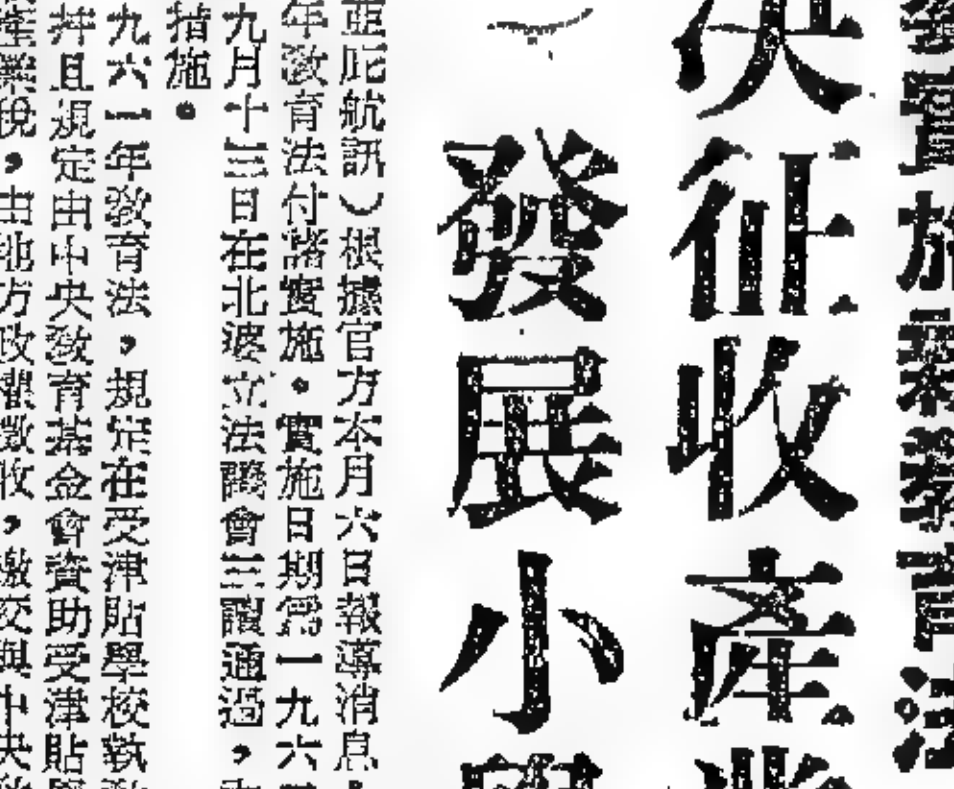 實施教育法
決征收產業
發展小學
亞庇航訊）根據官方本月六日報導消息
年敎育法付諸實施。實施日期爲一九六
九月十三日在北婆立法議會三讀通過，
措施。
九六一年敎育法，規定在受津貼學校執
并且規定由中央敎育基金會資助受津貼
產業稅，由地方政權徵收，繳交與中央